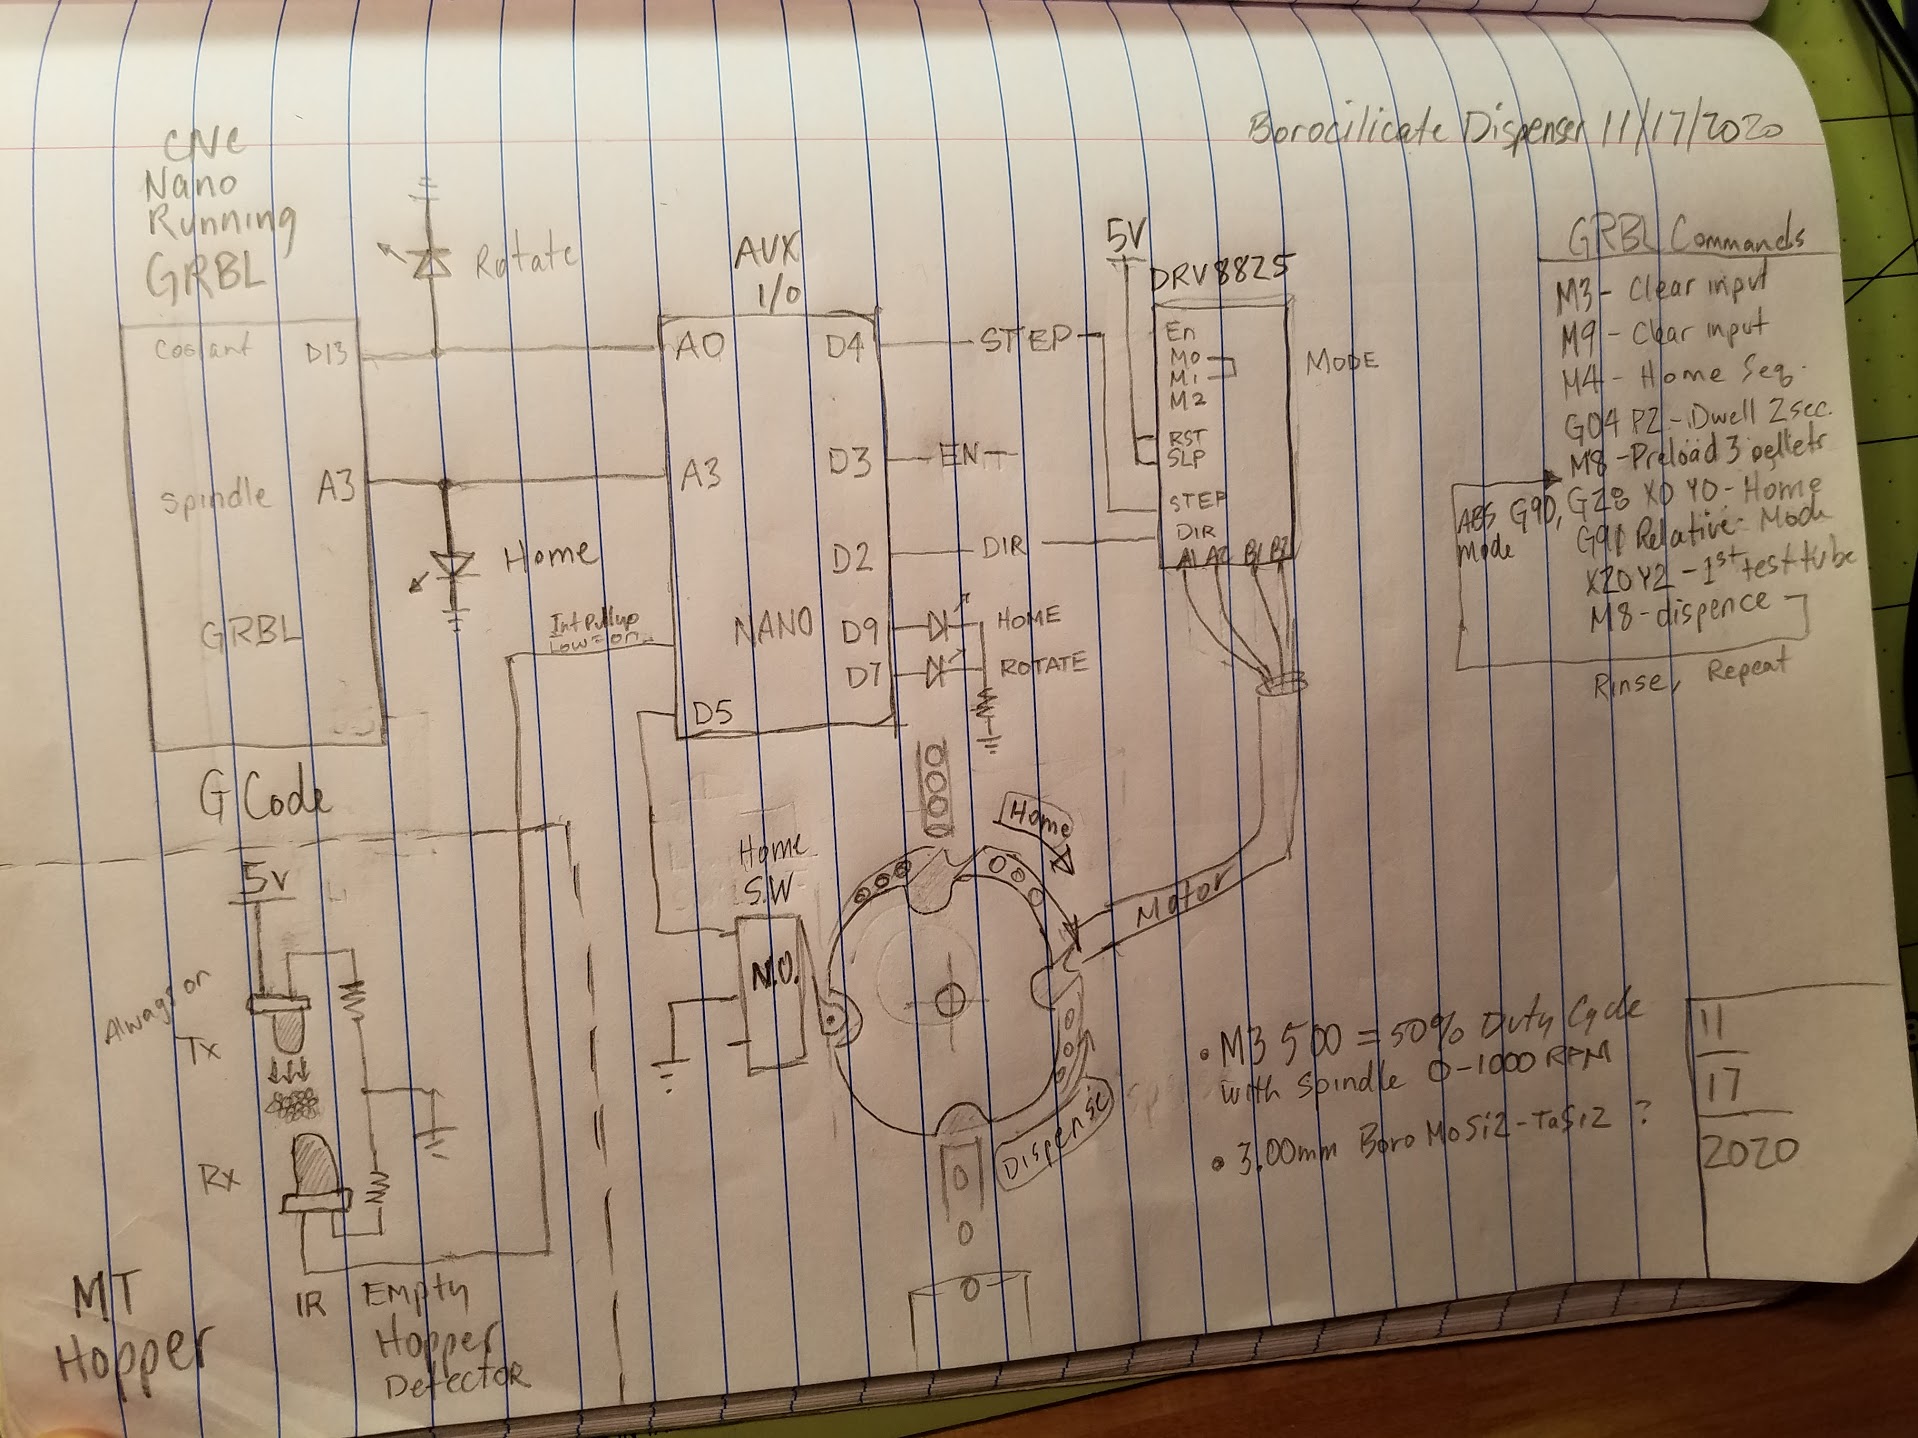 Borocilicate Dispenser 11/17/2020
CNC
Nano
Running
GRBL
Rotate
Coolant D13
Spindle A3
GRBL
Home
G Code
AUX
I/O
A0 D4
A3 D3
D2
NANO D9
D7
D5
STEP
EN
DIR
HOME
ROTATE
Int Pullup
Low = on
5V
DRV8825
En
M0
M1
M2
RST
SLP
STEP
DIR
A1 A2 B1 B2
MODE
GRBL Commands
M3 - Clear input
M9 - Clear input
M4 - Home Seq.
G04 P2 - Dwell 2 sec.
M8 - Preload 3 pellets
ABS G90, G28 X0 Y0 - Home
Mode
G91 Relative Mode
X20 Y2 - 1st test tube
M8 - dispence
Rinse, Repeat
Home
S.W
N.O.
Home
Motor
Dispense
5V
Always on
Tx
Rx
IR
Empty
Hopper
Detector
MT
Hopper
• M3 500 = 50% Duty Cycle
with spindle 0-1000 RPM
• 3.00mm Boro MoSi2-TaSi2 ?
11
17
2020